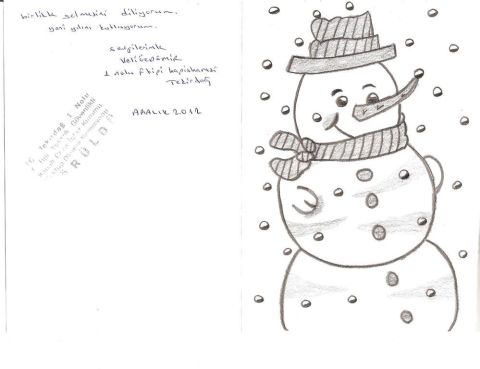 birlikte gelmesini diliyorum.
yeni yılını kutluyorum.
sevgilerimle
Veli Özdemir
1 nolu F tipi hapishanesi
Tekirdağ
ARALIK 2012
Tekirdağ 1 Nolu
GÖRÜLDÜ